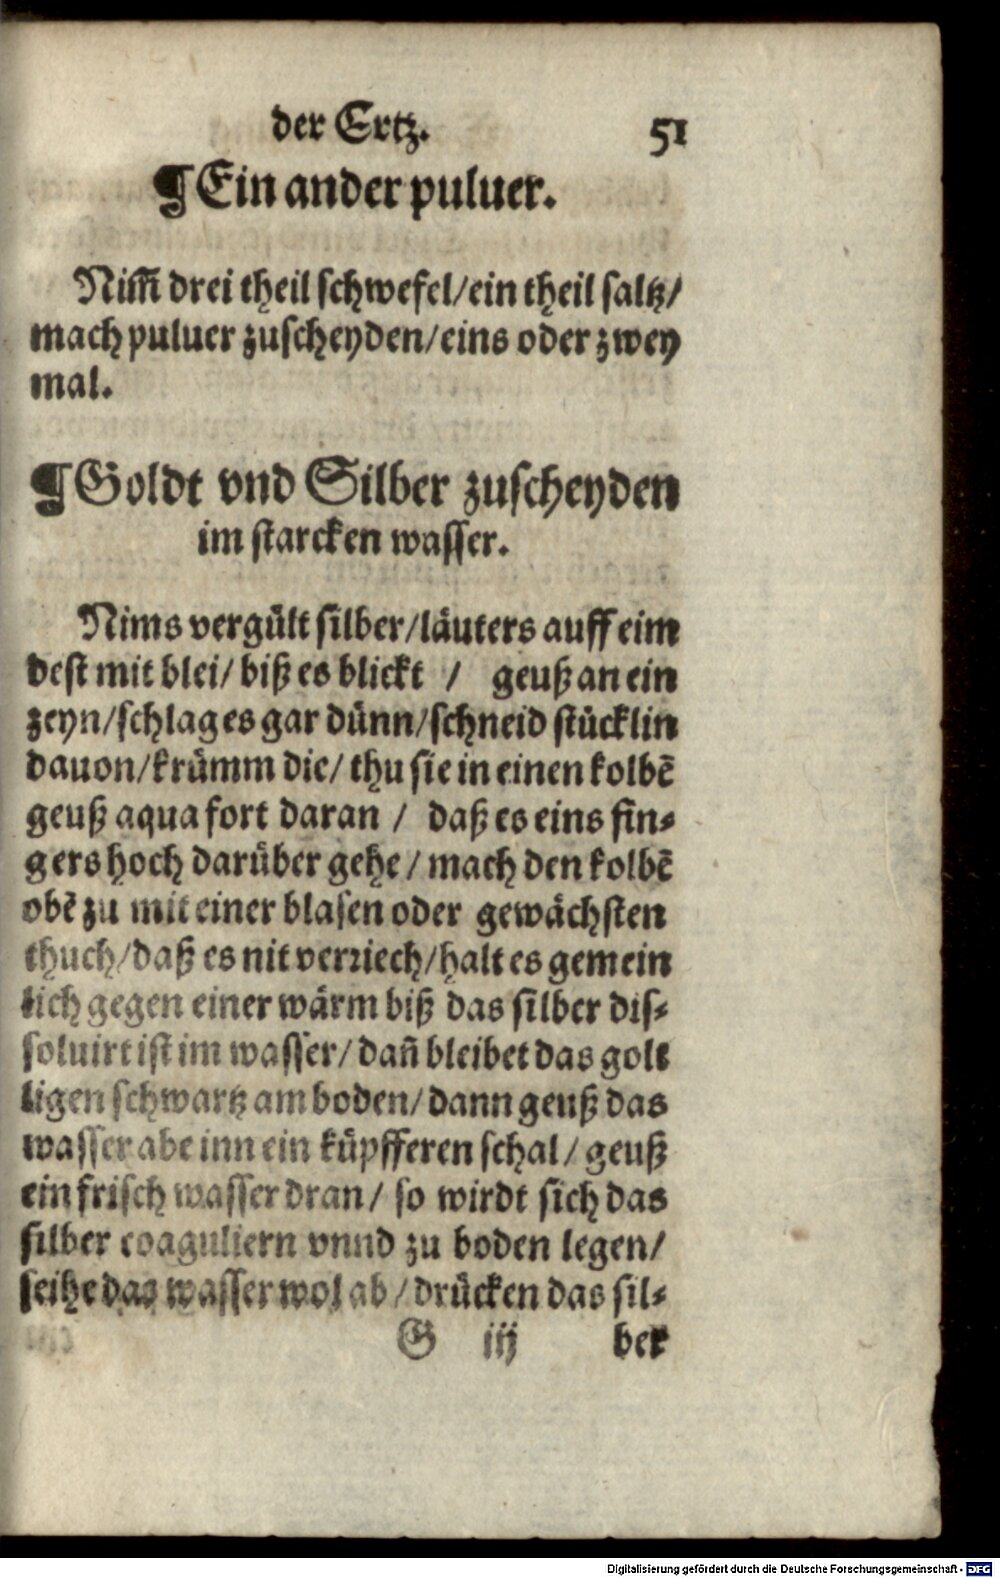 der Ertz. 51
¶Ein ander puluer.
Nim̃ drei theil schwefel/ein theil saltz/
mach puluer zuscheyden/eins oder zwey
mal.
¶Goldt vnd Silber zuscheyden
im starcken wasser.
Nims vergült silber/läuters auff eim
dest mit blei/ biß es blickt / geuß an ein
zeyn/schlag es gar dünn/schneid stücklin
dauon/krümm die/ thu sie in einen kolbẽ
geuß aqua fort daran / daß es eins fin⸗
gers hoch darüber gehe/ mach den kolbẽ
obẽ zu mit einer blasen oder gewächsten
thuch/daß es nit verriech/halt es gemein
lich gegen einer wärm biß das silber dis⸗
soluirt ist im wasser/ dañ bleibet das golt
ligen schwartz am boden/ dann geuß das
wasser abe inn ein küpfferen schal/ geuß
ein frisch wasser dran/ so wirdt sich das
silber coaguliern vnnd zu boden legen/
seihe das wasser wol ab/ drücken das sil⸗
G iij ber
Digitalisierung gefördert durch die Deutsche Forschungsgemeinschaft - DFG